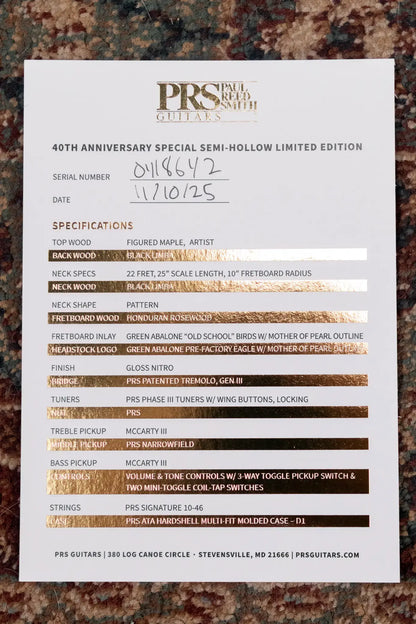 PRS PAUL REED SMITH
GUITARS
40TH ANNIVERSARY SPECIAL SEMI-HOLLOW LIMITED EDITION
SERIAL NUMBER 0418642
DATE 11/10/25
SPECIFICATIONS
TOP WOOD FIGURED MAPLE, ARTIST
BACK WOOD BLACK LIMBA
NECK SPECS 22 FRET, 25" SCALE LENGTH, 10" FRETBOARD RADIUS
NECK WOOD BLACK LIMBA
NECK SHAPE PATTERN
FRETBOARD WOOD HONDURAN ROSEWOOD
FRETBOARD INLAY GREEN ABALONE "OLD SCHOOL" BIRDS W/ MOTHER OF PEARL OUTLINE
HEADSTOCK LOGO GREEN ABALONE PRE-FACTORY EAGLE W/ MOTHER OF PEARL OUTLINE
FINISH GLOSS NITRO
BRIDGE PRS PATENTED TREMOLO, GEN III
TUNERS PRS PHASE III TUNERS W/ WING BUTTONS, LOCKING
NUT PRS
TREBLE PICKUP MCCARTY III
MIDDLE PICKUP PRS NARROWFIELD
BASS PICKUP MCCARTY III
CONTROLS VOLUME & TONE CONTROLS W/ 3-WAY TOGGLE PICKUP SWITCH &
TWO MINI-TOGGLE COIL-TAP SWITCHES
STRINGS PRS SIGNATURE 10-46
CASE PRS ATA HARDSHELL MULTI-FIT MOLDED CASE – D1
PRS GUITARS | 380 LOG CANOE CIRCLE · STEVENSVILLE, MD 21666 | PRSGUITARS.COM